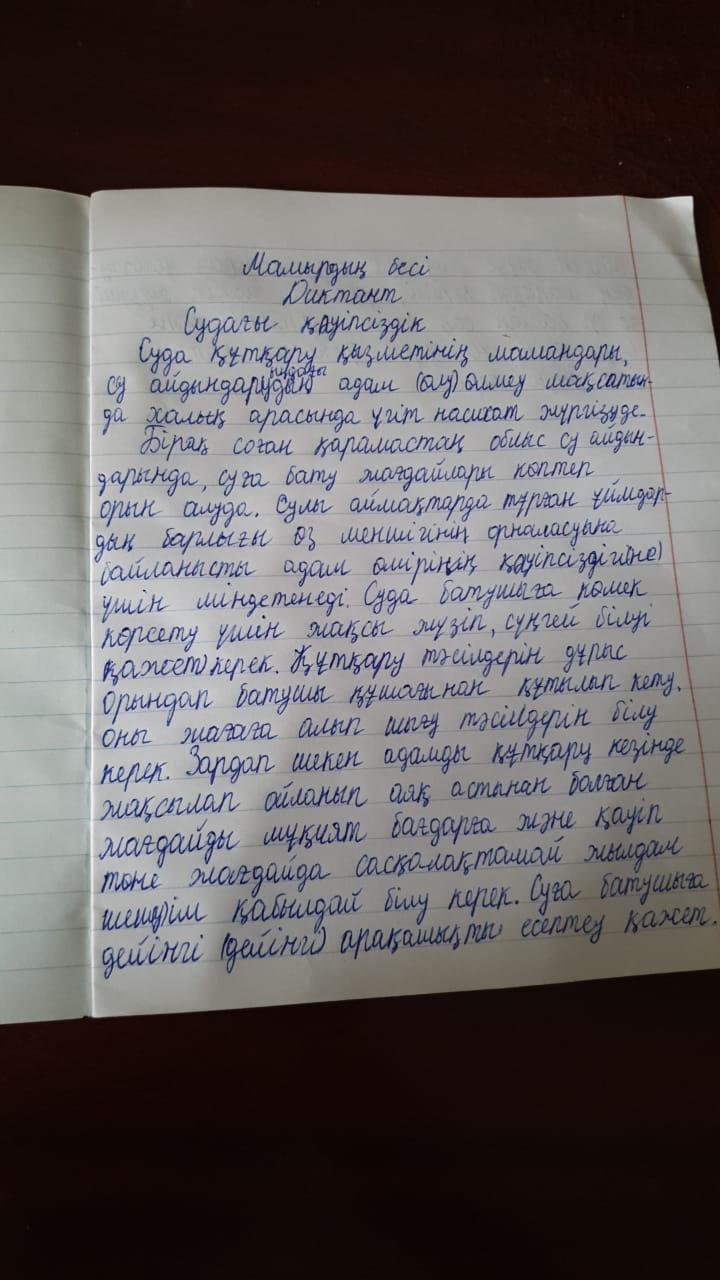 Мамырдың бесі
Диктант
Судағы қауіпсіздік
Суда құтқару қызметінің мамандары,
су айдындарудың адам (өлу) өлмеу мақсатын-
да халық арасында үгіт насихат жүргізуде.
Бірақ соған қарамастаң облыс су айдын-
дарында, суға бату жағдайлары көптеп
орын алуда. Сулы аймақтарда тұрған ұйымдар-
дың барлығы өз меншігінің орналасуына
байланысты адам өмірінің қауіпсіздігі(не)
үшін міндетенеді. Суда батушыға көмек
көрсету үшін жақсы жүзіп, сүңгей білуі
қажет) керек. Құтқару тәсілдерін дұрыс
орындап батушы құшағынан құтылып кету,
оны жағаға алып шығу тәсілдерін білу
керек. Зардап шекен адамды құтқару кезінде
жақсылап ойланып аяқ астынан болған
жағдайды мұқият бағдарға және қауіп
төне жағдайда сасқалақтамай жылдам
шешім қабылдай білу керек. Суға батушыға
дейінгі (дейінгі) арақашықты есептеу қажет.